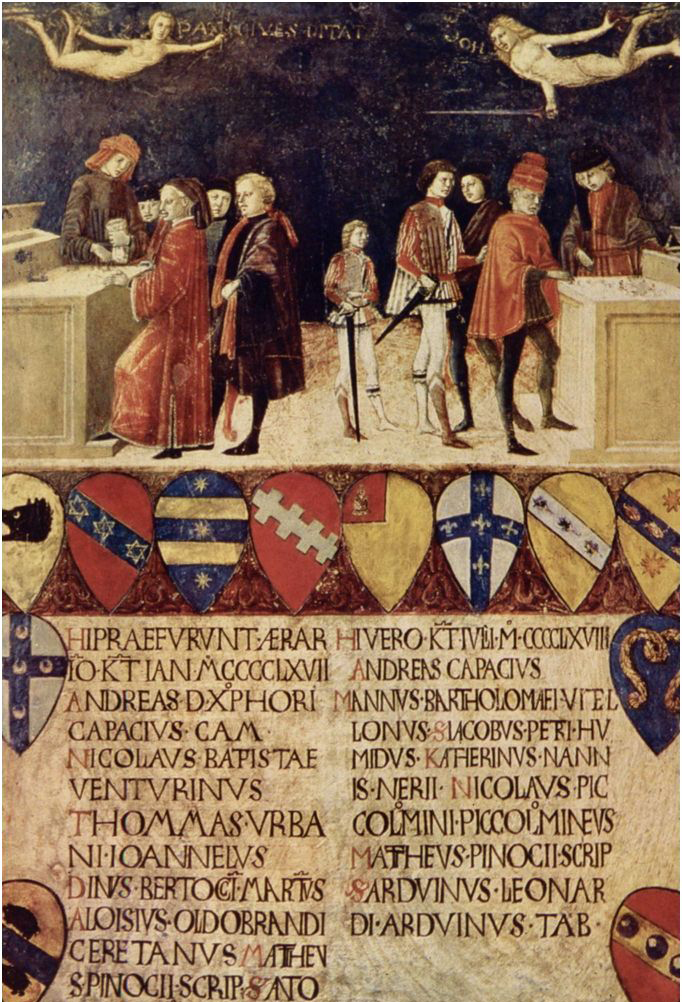 HI PRAEFVRVNT·ÆRAR
IO·KT IAN·MCCCCLXVII
ANDREAS·D·XPHORI
CAPACIVS·CAM·
NICOLAVS·BATISTAE
VENTVRINVS
THOMMAS·VRBA
NI·IOANNELVS
DINVS·BERTOCCI·MARTIVS
ALOISIVS·OLDOBRANDI
CERETANVS·MATHEV
S·PINOCII·SCRIP·SATO
HI VERO·KT IVLI·M·CCCCLXVIII
ANDREAS CAPACIVS
MANNVS·BARTHOLOMAEI·VITEL
LONVS·SIACOBVS·PETRI·HV
MIDVS·KATHERINVS·NANN
IS·NERII·NICOLAVS·PIC
COLOMINI·PICCOLOMINEVS
MATHEVS·PINOCII·SCRIP
SARDVINVS·LEONAR
DI·ARDVINVS·TAB·